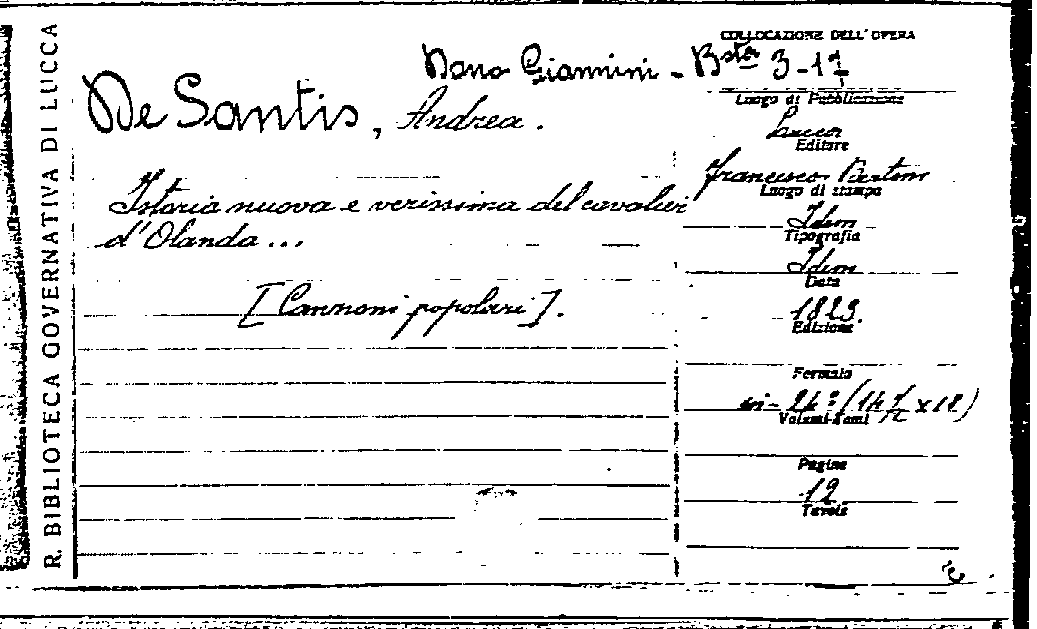 R. BIBLIOTECA GOVERNATIVA DI LUCCA
COLLOCAZIONE DELL' OPERA
Dono Giannini - Bsta 3-17
De Santis, Andrea.
Istoria nuova e verissima del cavalier
d'Olanda...
[Canzoni popolari].
Luogo di Pubblicazione
Lucca
Editore
Francesco Bertini
Luogo di stampa
Idem
Tipografia
Idem
Data
1823.
Edizione
Formato
in-24º (14 1/2 x 12)
Volumi-Tomi
Pagine
12
Tavole